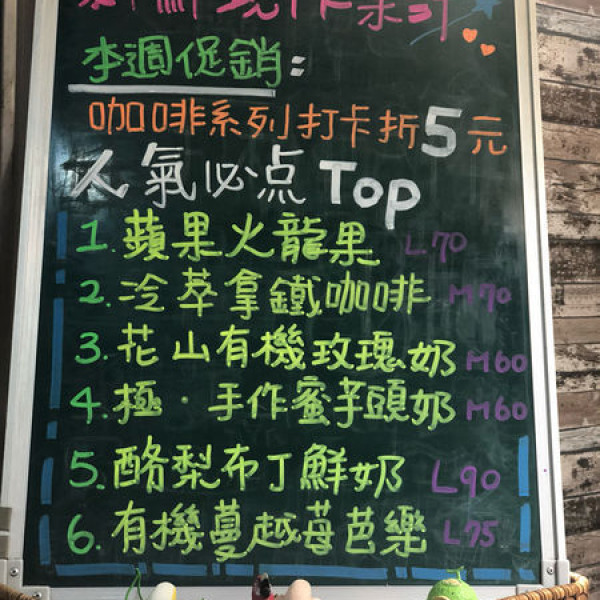 本週促銷:
咖啡系列打卡折5元
人氣必点 Top
1. 蘋果火龍果 L.70
2. 冷萃拿鐵咖啡 M70
3. 花山有機玫瑰奶 M60
4. 極·手作蜜芋頭奶 M60
5. 酪梨布丁鮮奶 L90
6. 有機蔓越莓芭樂 L75